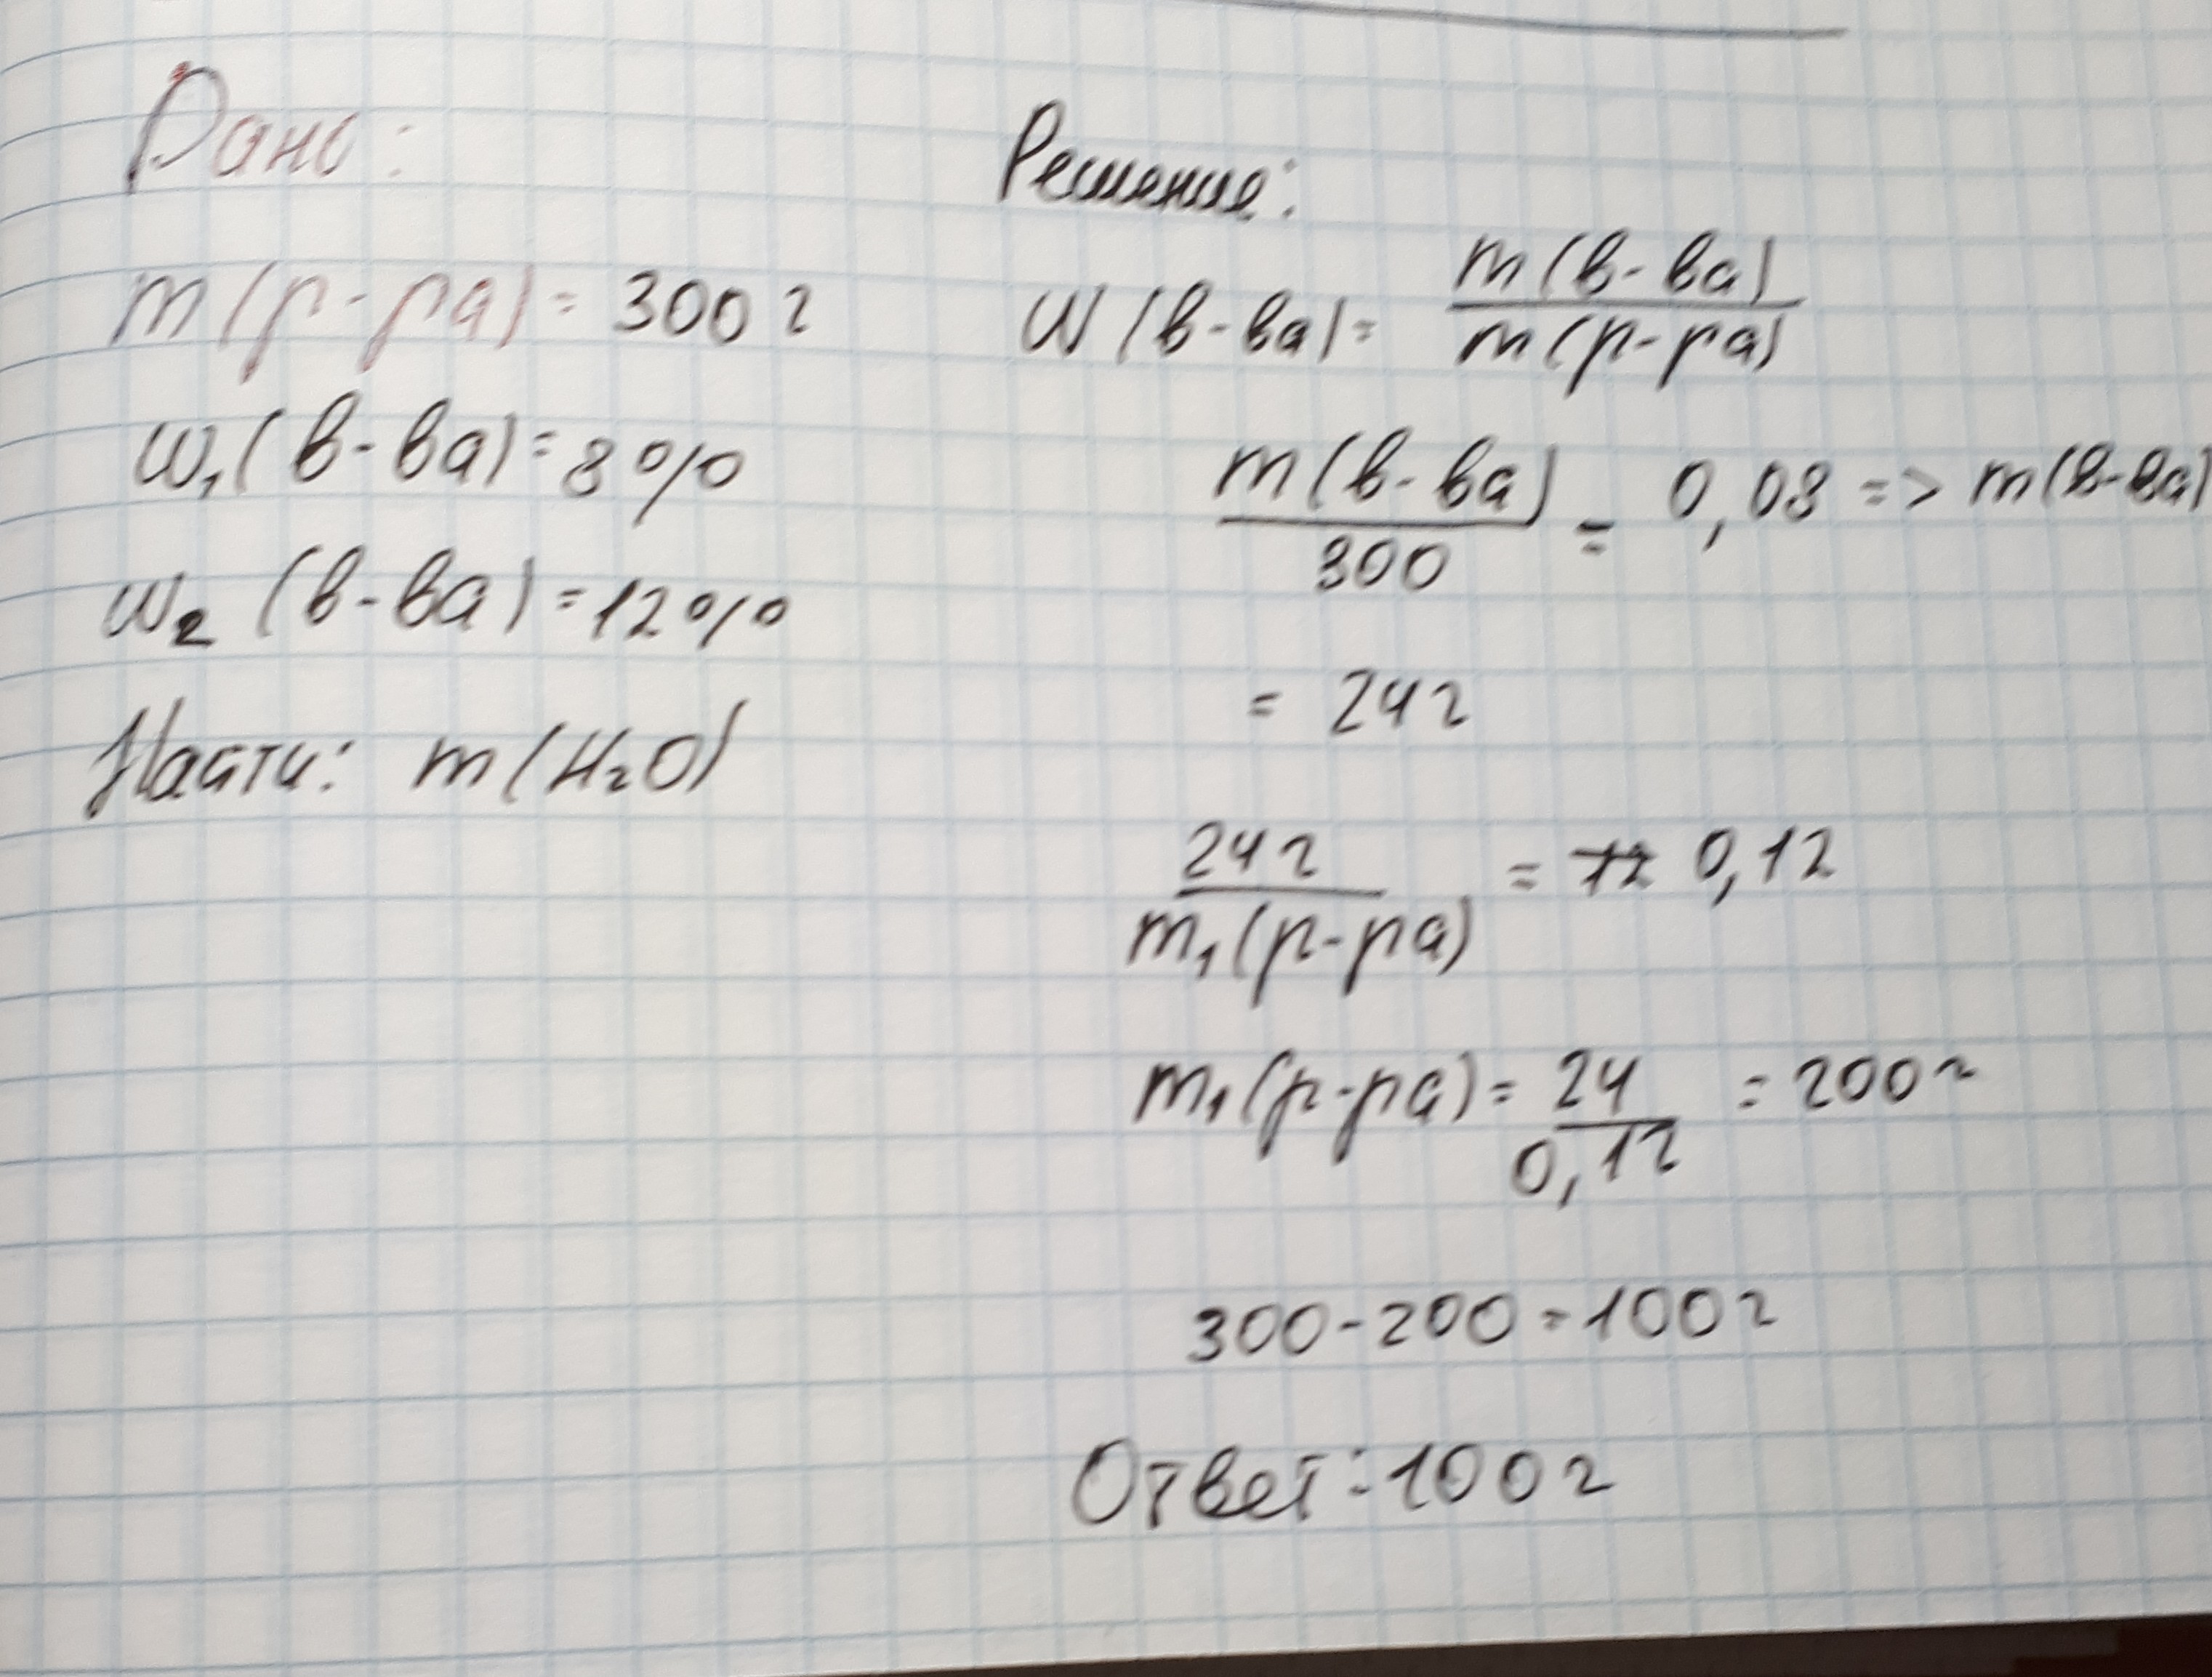 Дано:
m(р-ра) = 300 г
w₁(в-ва) = 8%
w₂(в-ва) = 12%
Найти: m(H₂O)
Решение:
w(в-ва) = m(в-ва) / m(р-ра)
m(в-ва) / 300 = 0,08 => m(в-ва)
= 24 г
24 г / m₁(р-ра) = 0,12
m₁(р-ра) = 24 / 0,12 = 200 г
300 - 200 = 100 г
Ответ: 100 г